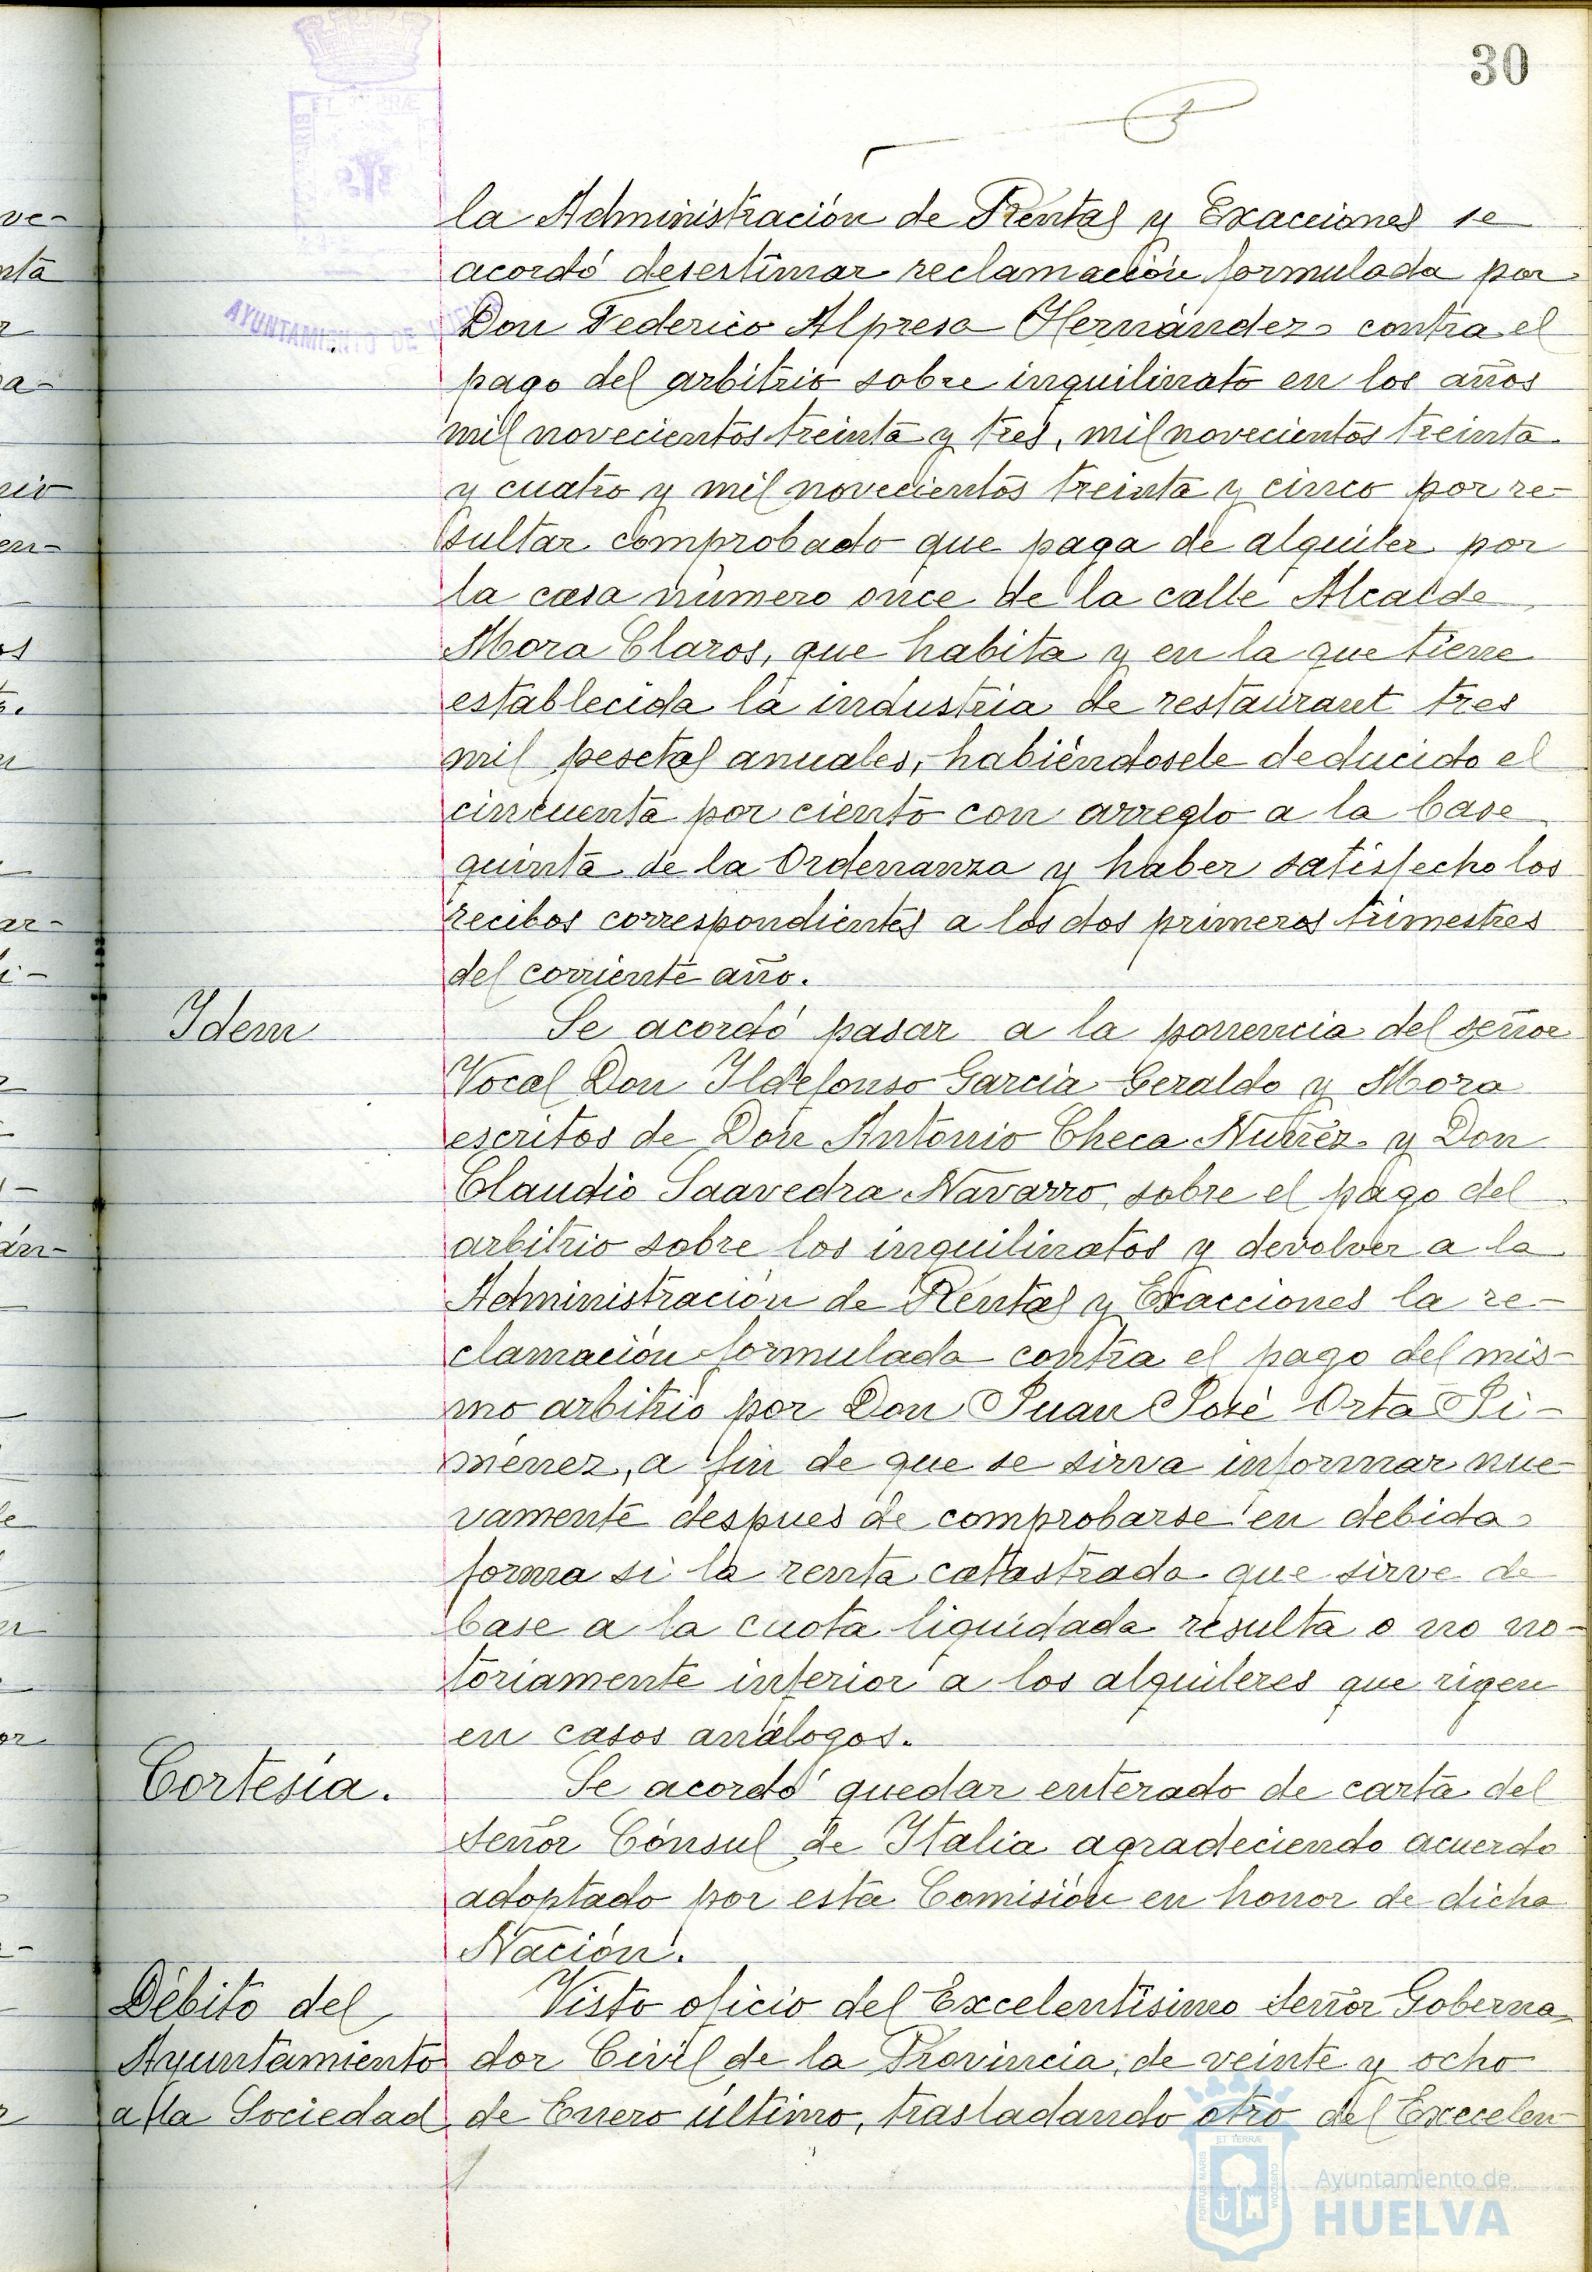 30
la Administración de Rentas y Exacciones se
acordó desestimar reclamación formulada por
Don Federico Alpresa Hernández contra el
pago del arbitrio sobre inquilinato en los años
mil novecientos treinta y tres, mil novecientos treinta
y cuatro y mil novecientos treinta y cinco por re-
sultar comprobado que paga de alquiler por
la casa número once de la calle Alcalde
Mora Claros, que habita y en la que tiene
establecida la industria de restaurant tres
mil pesetas anuales, habiéndosele deducido el
cincuenta por ciento con arreglo a la base
quinta de la Ordenanza y haber satisfecho los
recibos correspondientes a los dos primeros trimestres
del corriente año.
Idem
Se acordó pasar a la ponencia del señor
Vocal Don Ildefonso Garcia Geraldo y Mora
escritos de Don Antonio Checa Nuñez y Don
Claudio Saavedra Navarro, sobre el pago del
arbitrio sobre los inquilinatos y devolver a la
Administración de Rentas y Exacciones la re-
clamación formulada contra el pago del mis-
mo arbitrio por Don Juan José Orta Ji-
ménez, a fin de que se sirva informar nue-
vamente despues de comprobarse en debida
forma si la renta catastrada que sirve de
base a la cuota liquidada resulta o no no-
toriamente inferior a los alquileres que rigen
en casos análogos.
Cortesía.
Se acordó quedar enterado de carta del
señor Cónsul de Italia agradeciendo acuerdo
adoptado por esta Comisión en honor de dicha
Nación.
Débito del
Ayuntamiento
a la Sociedad
Visto oficio del Excelentísimo Señor Goberna-
dor Civil de la Provincia, de veinte y ocho
de Enero último, trasladando otro del Excelen-
AYUNTAMIENTO DE HUELVA
Ayuntamiento de
HUELVA